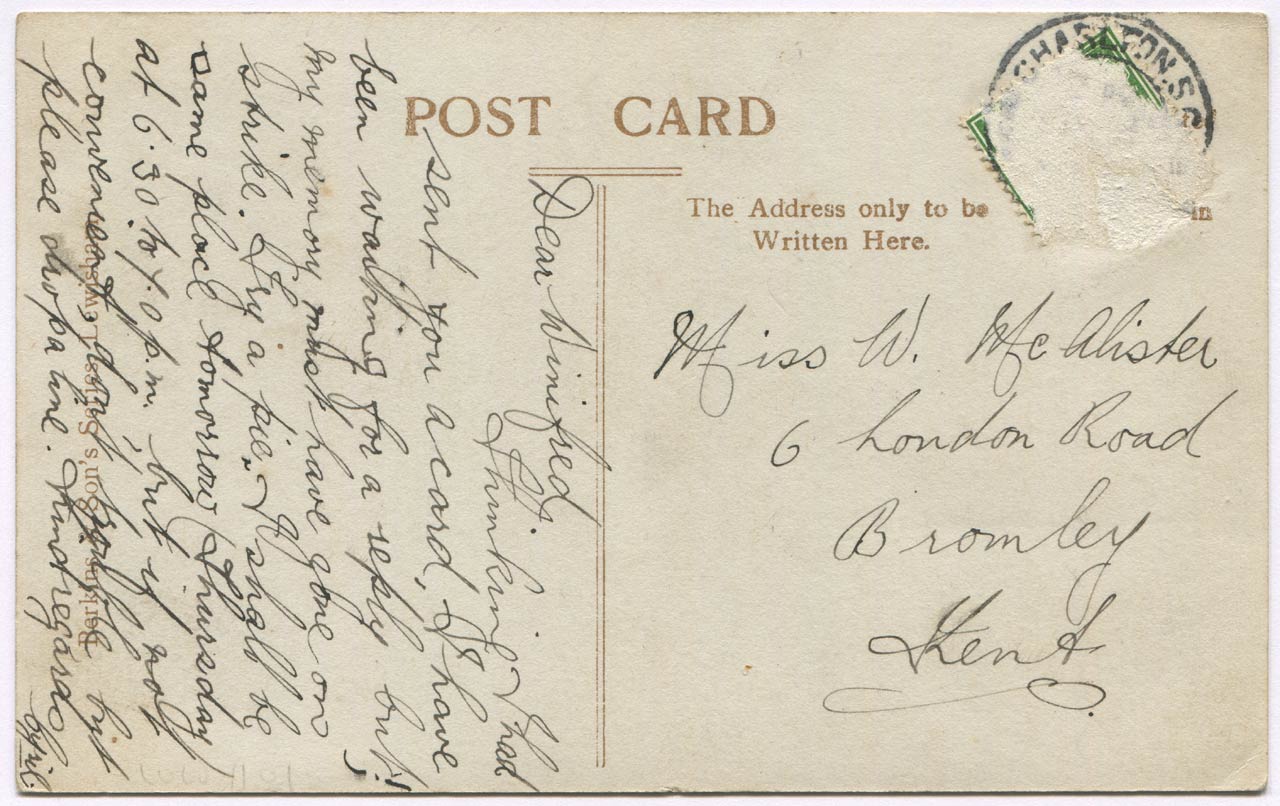 POST CARD
The Address only to be in
Written Here.
CHARLTON. S.
Miss W. McAlister
6 London Road
Bromley
Kent.
Dear Winifred,
Thinking I had
sent you a card, I have
been waiting for a reply but!!
my memory must have gone on
strike. Try a pie. I shall be
same place tomorrow Thursday
at 6.30 to 7.0 p.m. but if not
convenient, don't trouble but
please drop a line. Kind regards
Perkins & Son's Series Lewisham